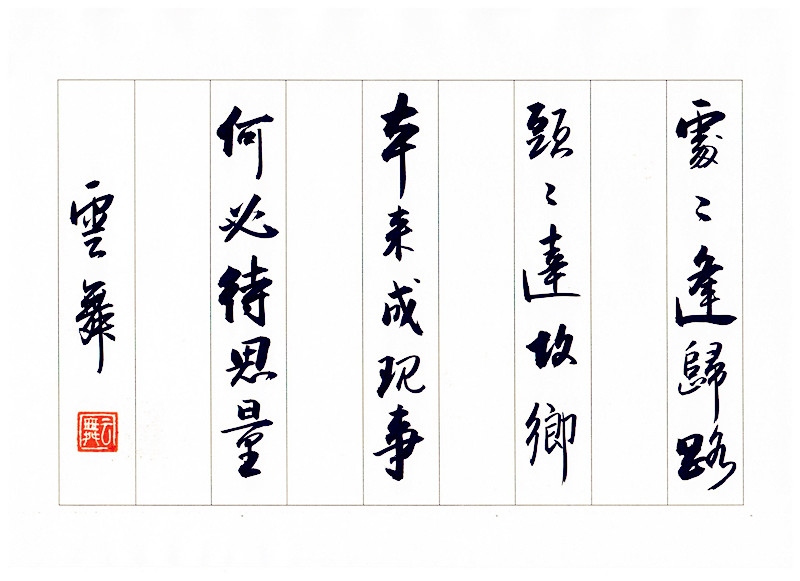 處〻逢歸路
頭〻達故鄉
本来成現事
何必待思量
雲舞
云舞